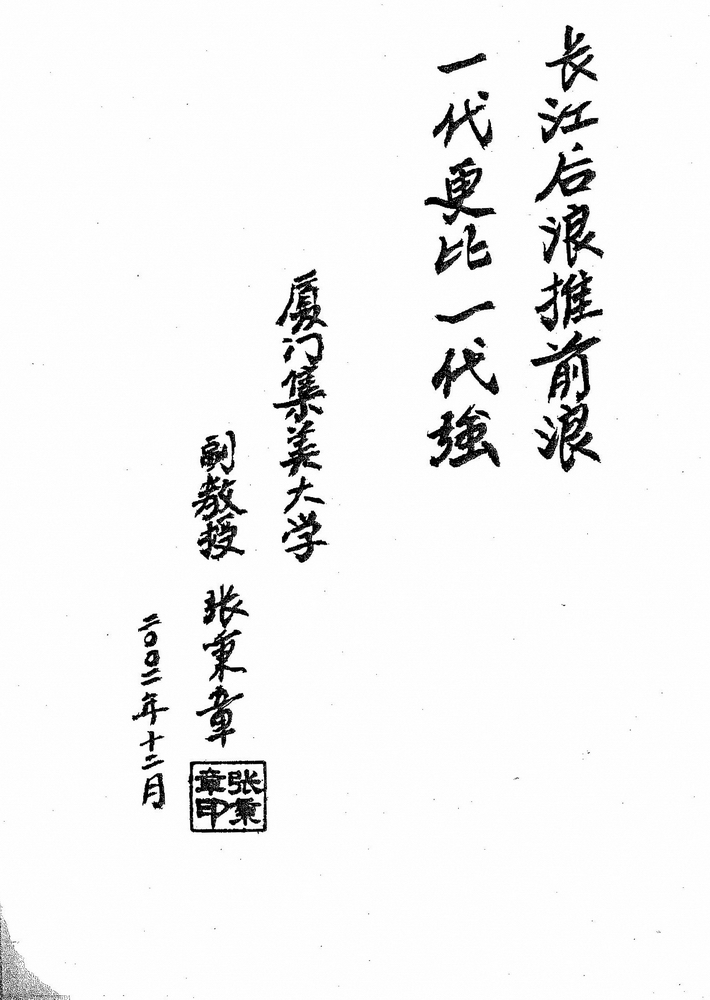 长江后浪推前浪
一代更比一代強
厦门集美大学
副教授 张秉章
二〇〇二年十二月
张秉章印